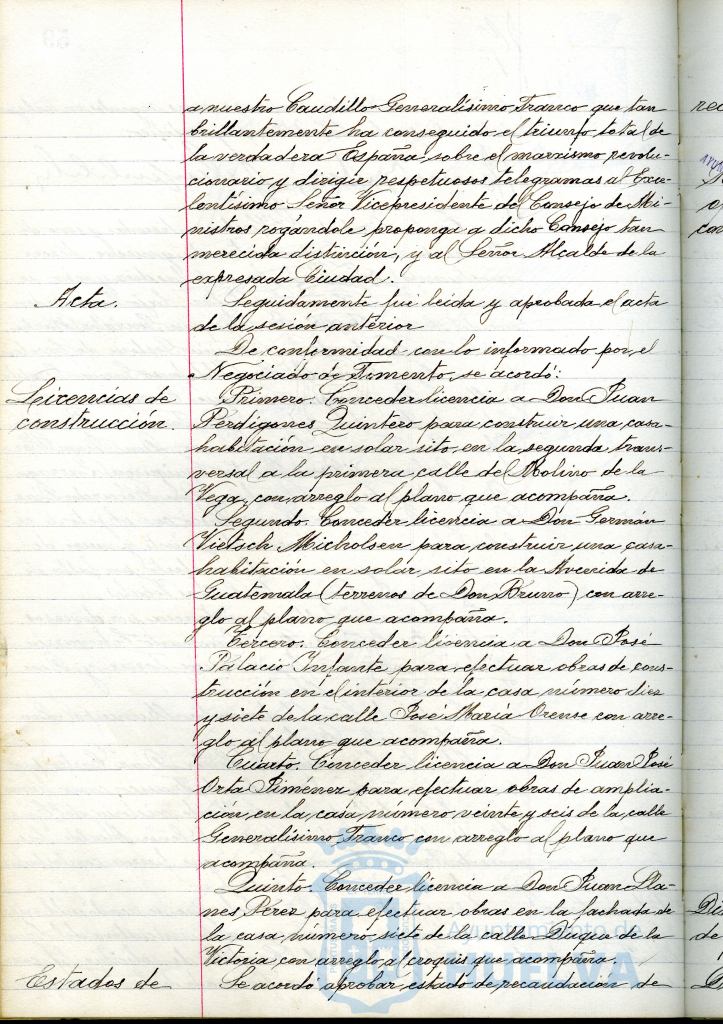 a nuestro Caudillo Generalísimo Franco que tan
brillantemente ha conseguido el triunfo total de
la verdadera España sobre el marxismo revolu-
cionario y dirigir respetuosos telegramas al Exce-
lentísimo Señor Vicepresidente del Consejo de Mi
nistros rogándole proponga a dicho Consejo tan
merecida distinción, y al Señor Alcalde de la
expresada Ciudad.
Acta.
Seguidamente fué leida y aprobada el acta
de la sesión anterior
De conformidad con lo informado por el
Negociado de Fomento, se acordó:
Licencias de
construcción.
Primero. Conceder licencia a Don Juan
Perdigones Quintero para construir una casa
habitación en solar sito en la segunda trans-
versal a la primera calle del Molino de la
Vega, con arreglo al plano que acompaña.
Segundo. Conceder licencia a Don Germán
Vietsch Micholsen para construir una casa
habitación en solar sito en la Avenida de
Guatemala (terrenos de Don Bruno) con arre-
glo al plano que acompaña.
Tercero. Conceder licencia a Don José
Palacio Infante para efectuar obras de cons-
trucción en el interior de la casa número diez
y siete de la calle José María Orense con arre-
glo al plano que acompaña.
Cuarto. Conceder licencia a Don Juan José
Orta Jiménez para efectuar obras de amplia-
ción en la casa número veinte y seis de la calle
Generalísimo Franco con arreglo al plano que
acompaña.
Quinto. Conceder licencia a Don Juan Lla-
nes Pérez para efectuar obras en la fachada de
la casa número siete de la calle Duque de la
Victoria con arreglo al croquis que acompaña.
Estados de
Se acordo aprobar estado de recaudación de
Ayuntamiento de
HUELVA